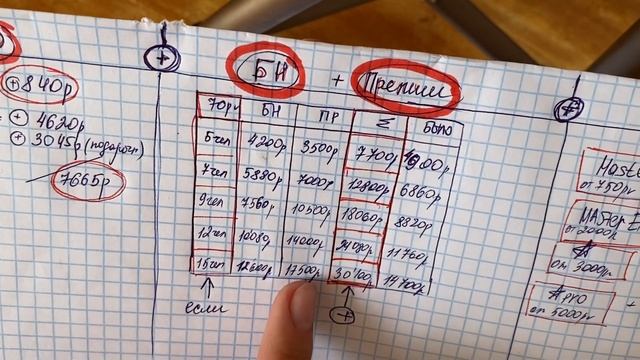 + 840р
+ 4620р
+ 3045р (подарки)
7665р
+
БН + Премии
БН ПР Σ Было
5чел 4200р 3500р 7700р
7чел 5880р 7000р 12800р 6860р
9чел 7560р 10500р 18060р 8820р
12чел 10080р 14000р 24080р 11760р
15чел 12600р 17500р 30100р 14700р
если
+
#
от 750р
от 2000р
от 3000р
Apro
от 5000р